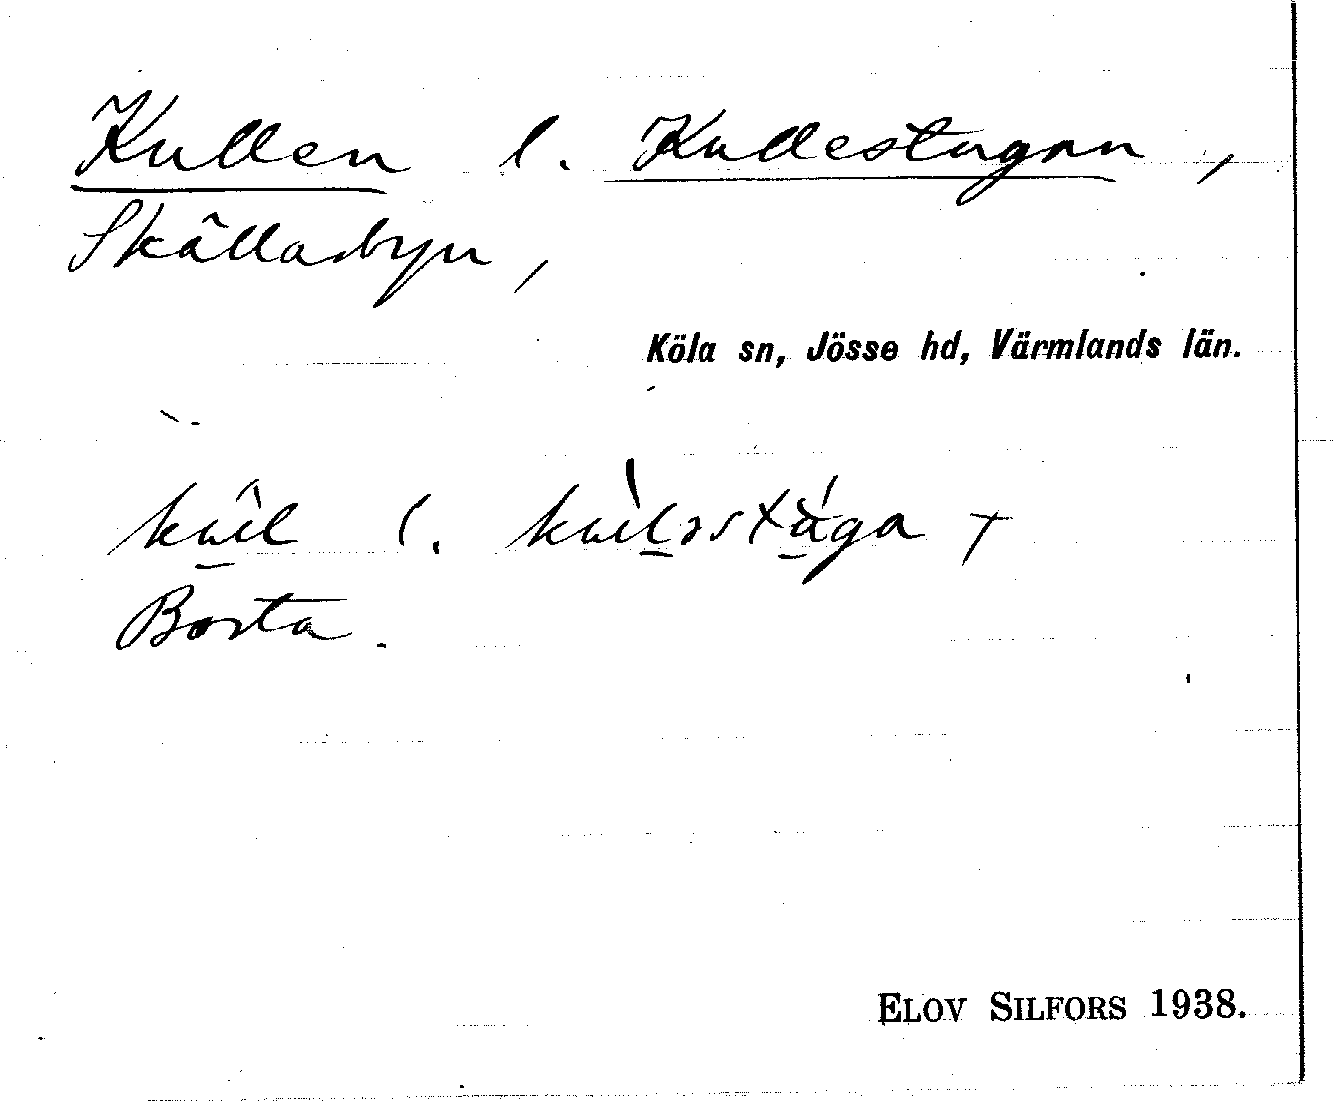 Kullen l. Kullestugan,
Skålla­byn,
Köla sn, Jösse hd, Värmlands län.
l.
Borta.
ELOV SILFORS 1938.